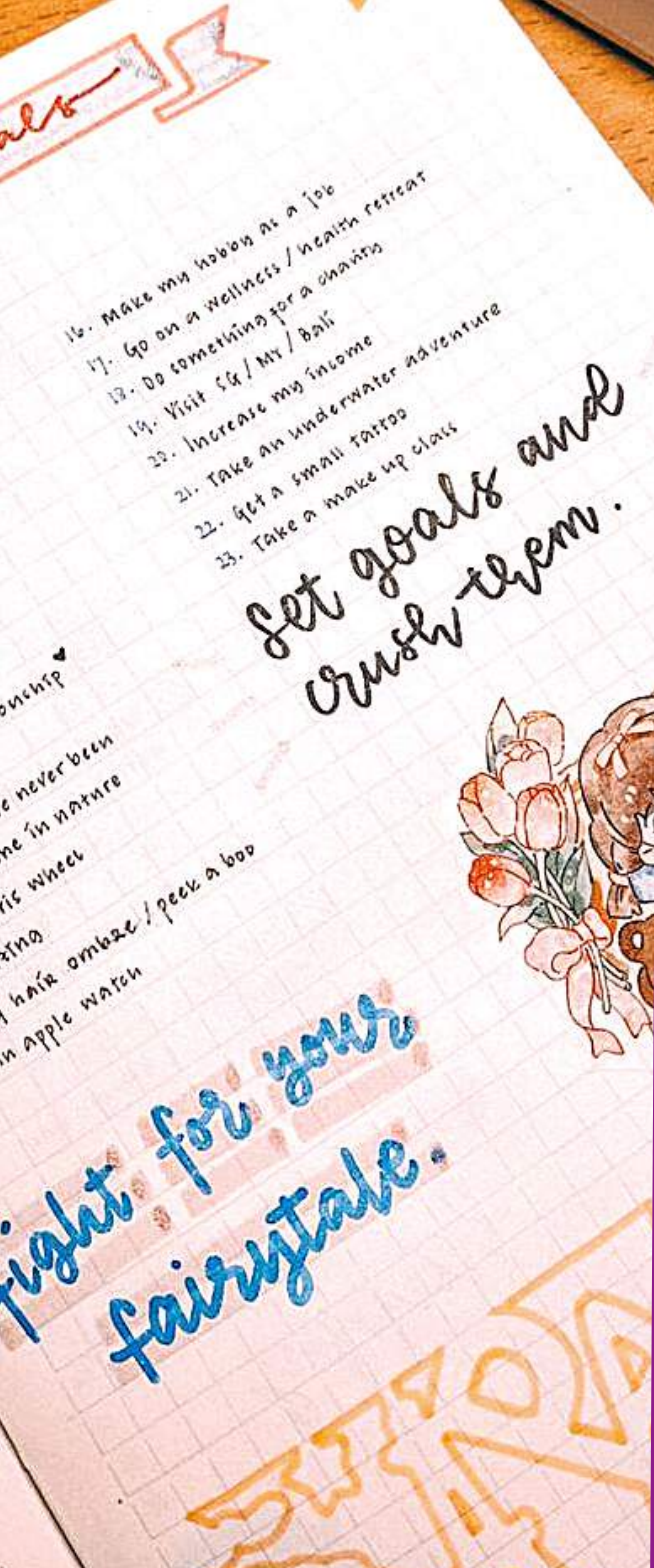 als
16. Make my hobby as a job
17. Go on a wellness / health retreat
18. Do something for a charity
19. Visit SG / MY / Bali
20. Increase my income
21. Take an underwater adventure
22. Get a small tattoo
23. Take a make up class
Set goals and
crush them.
onship
e never been
ne in nature
ris wheel
zing
y hair ombre / peek a boo
n apple watch
fight for your
fairytale.